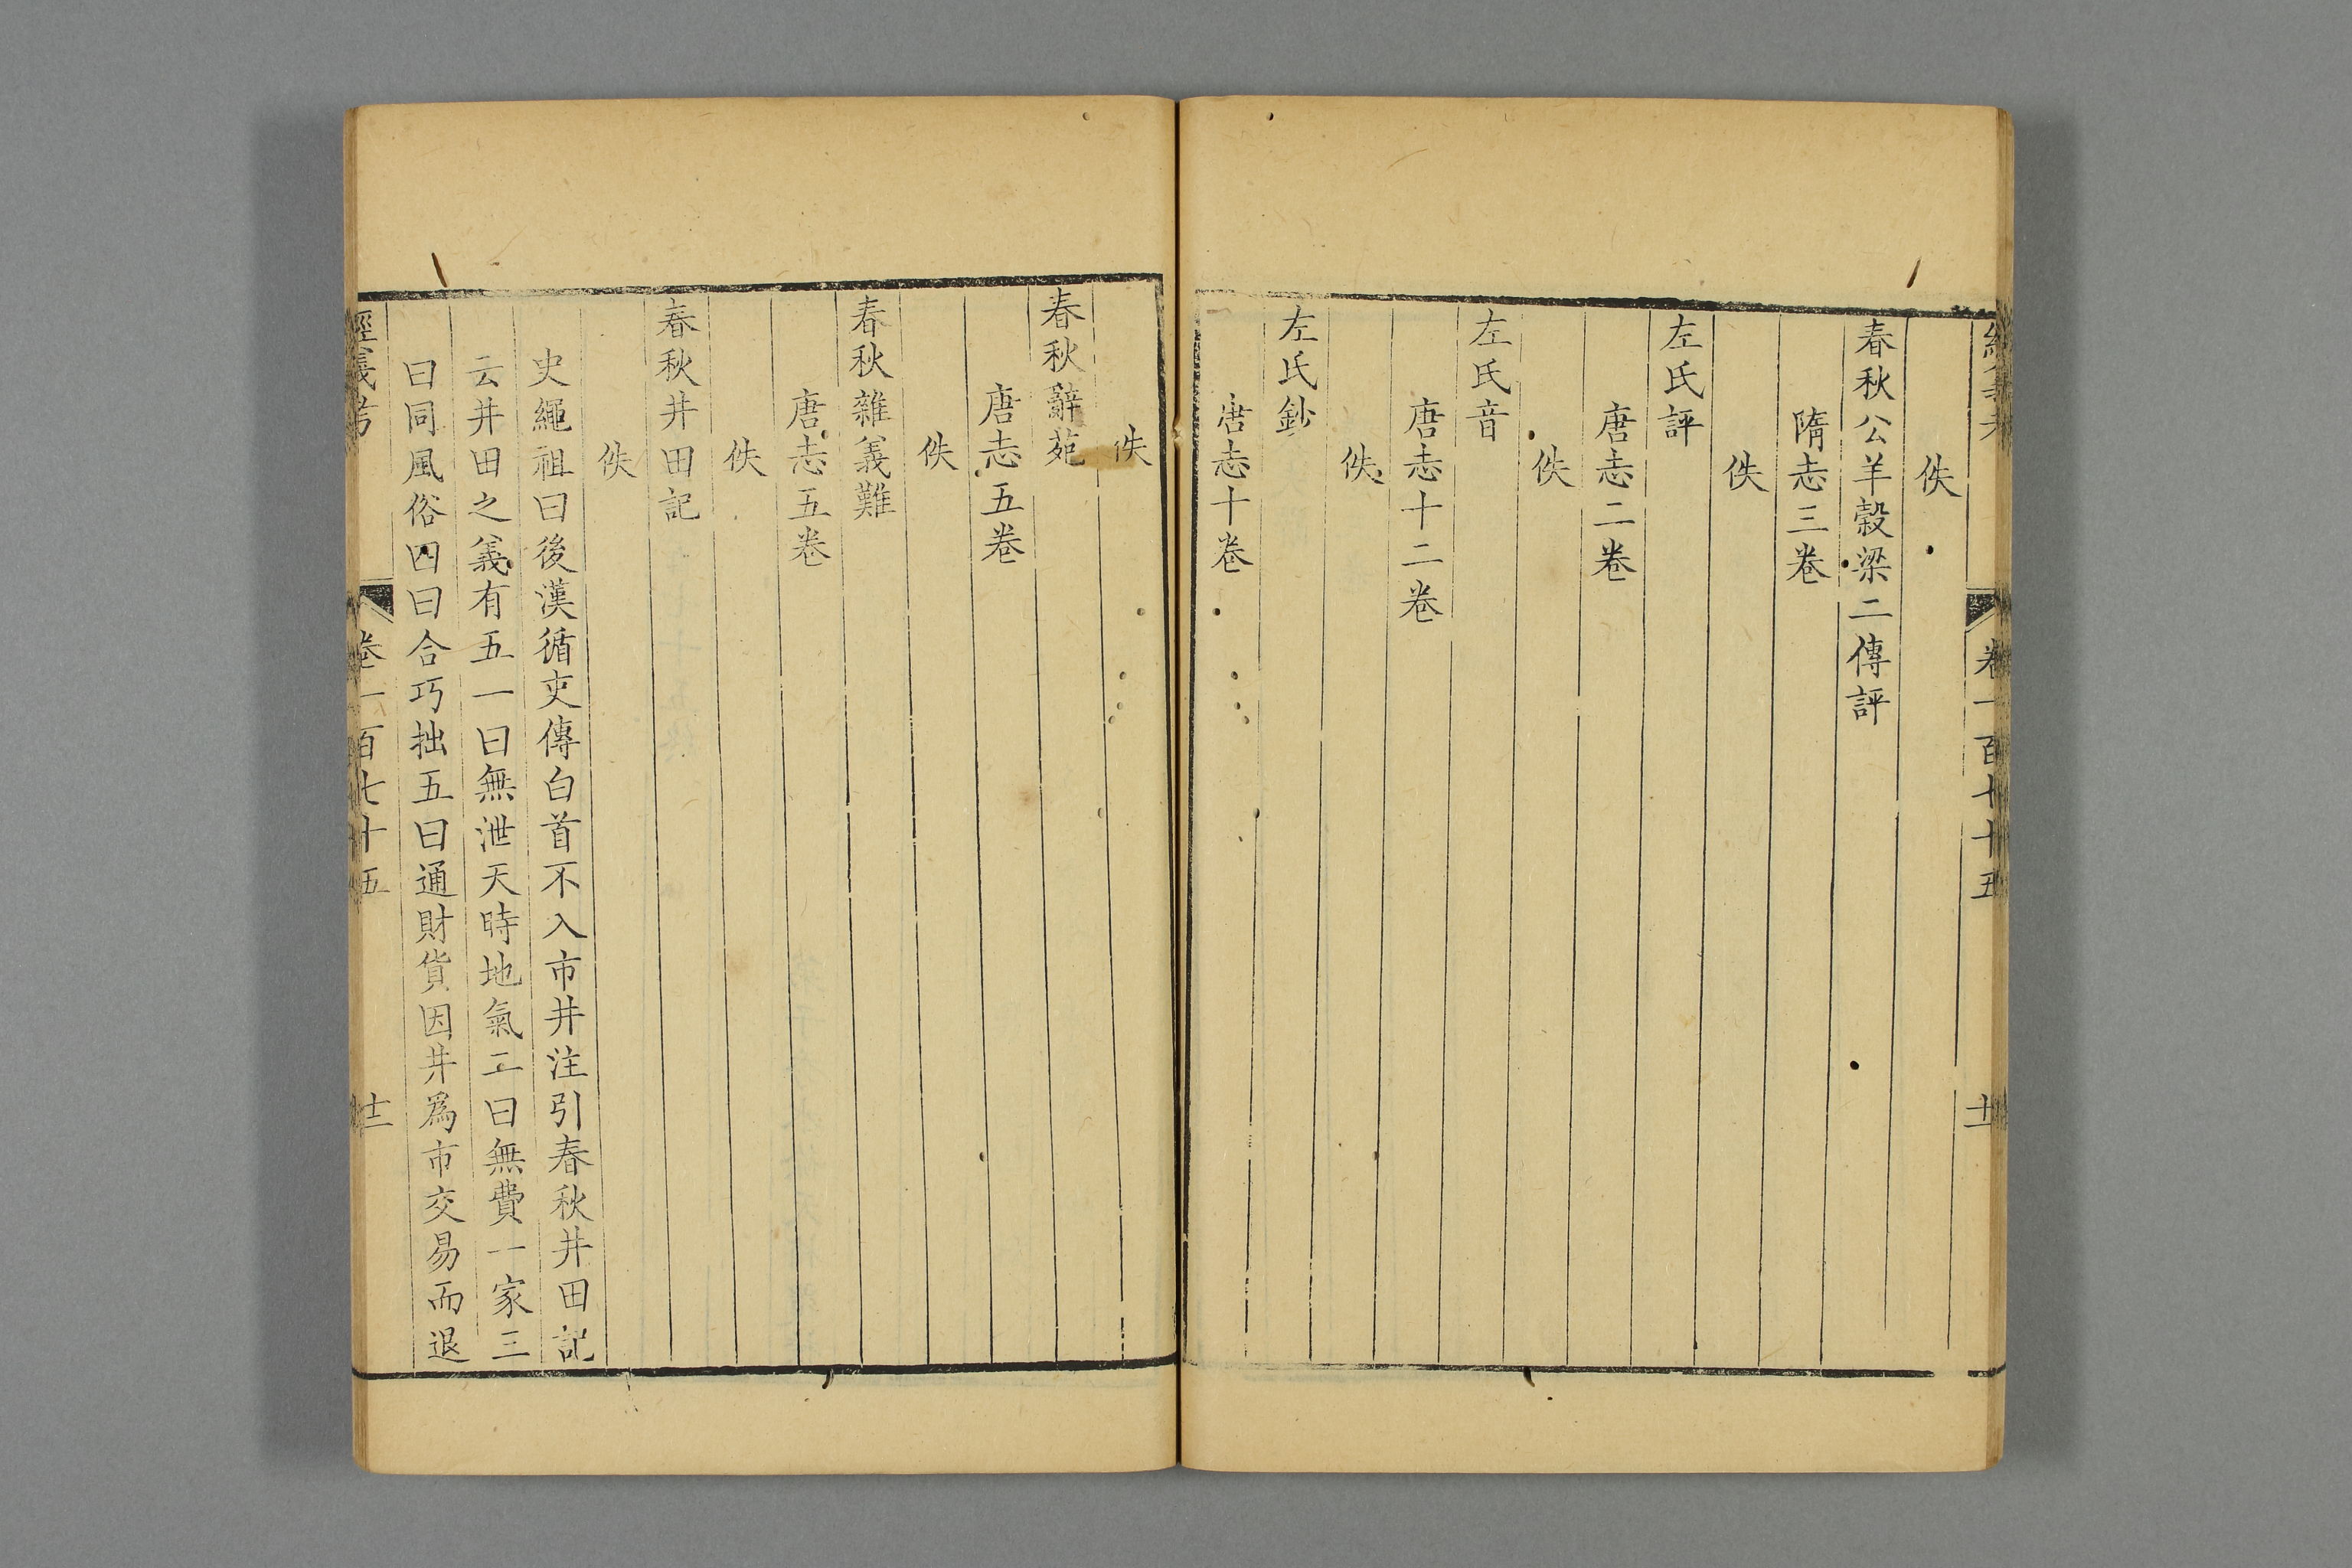 經義考 卷一百七十五 十一
佚
春秋公羊穀梁二傳評
隋志三卷
佚
左氏評
唐志二卷
佚
左氏音
唐志十二卷
佚
左氏鈔
唐志十卷
佚
春秋辭苑
唐志五卷
佚
春秋雜義難
唐志五卷
佚
春秋井田記
佚
史繩祖曰後漢循吏傳白首不入市井注引春秋井田記
云井田之義有五一曰無泄天時地氣二曰無費一家三
曰同風俗四曰合巧拙五曰通財貨因井爲市交易而退
經義考 卷一百七十五 十二